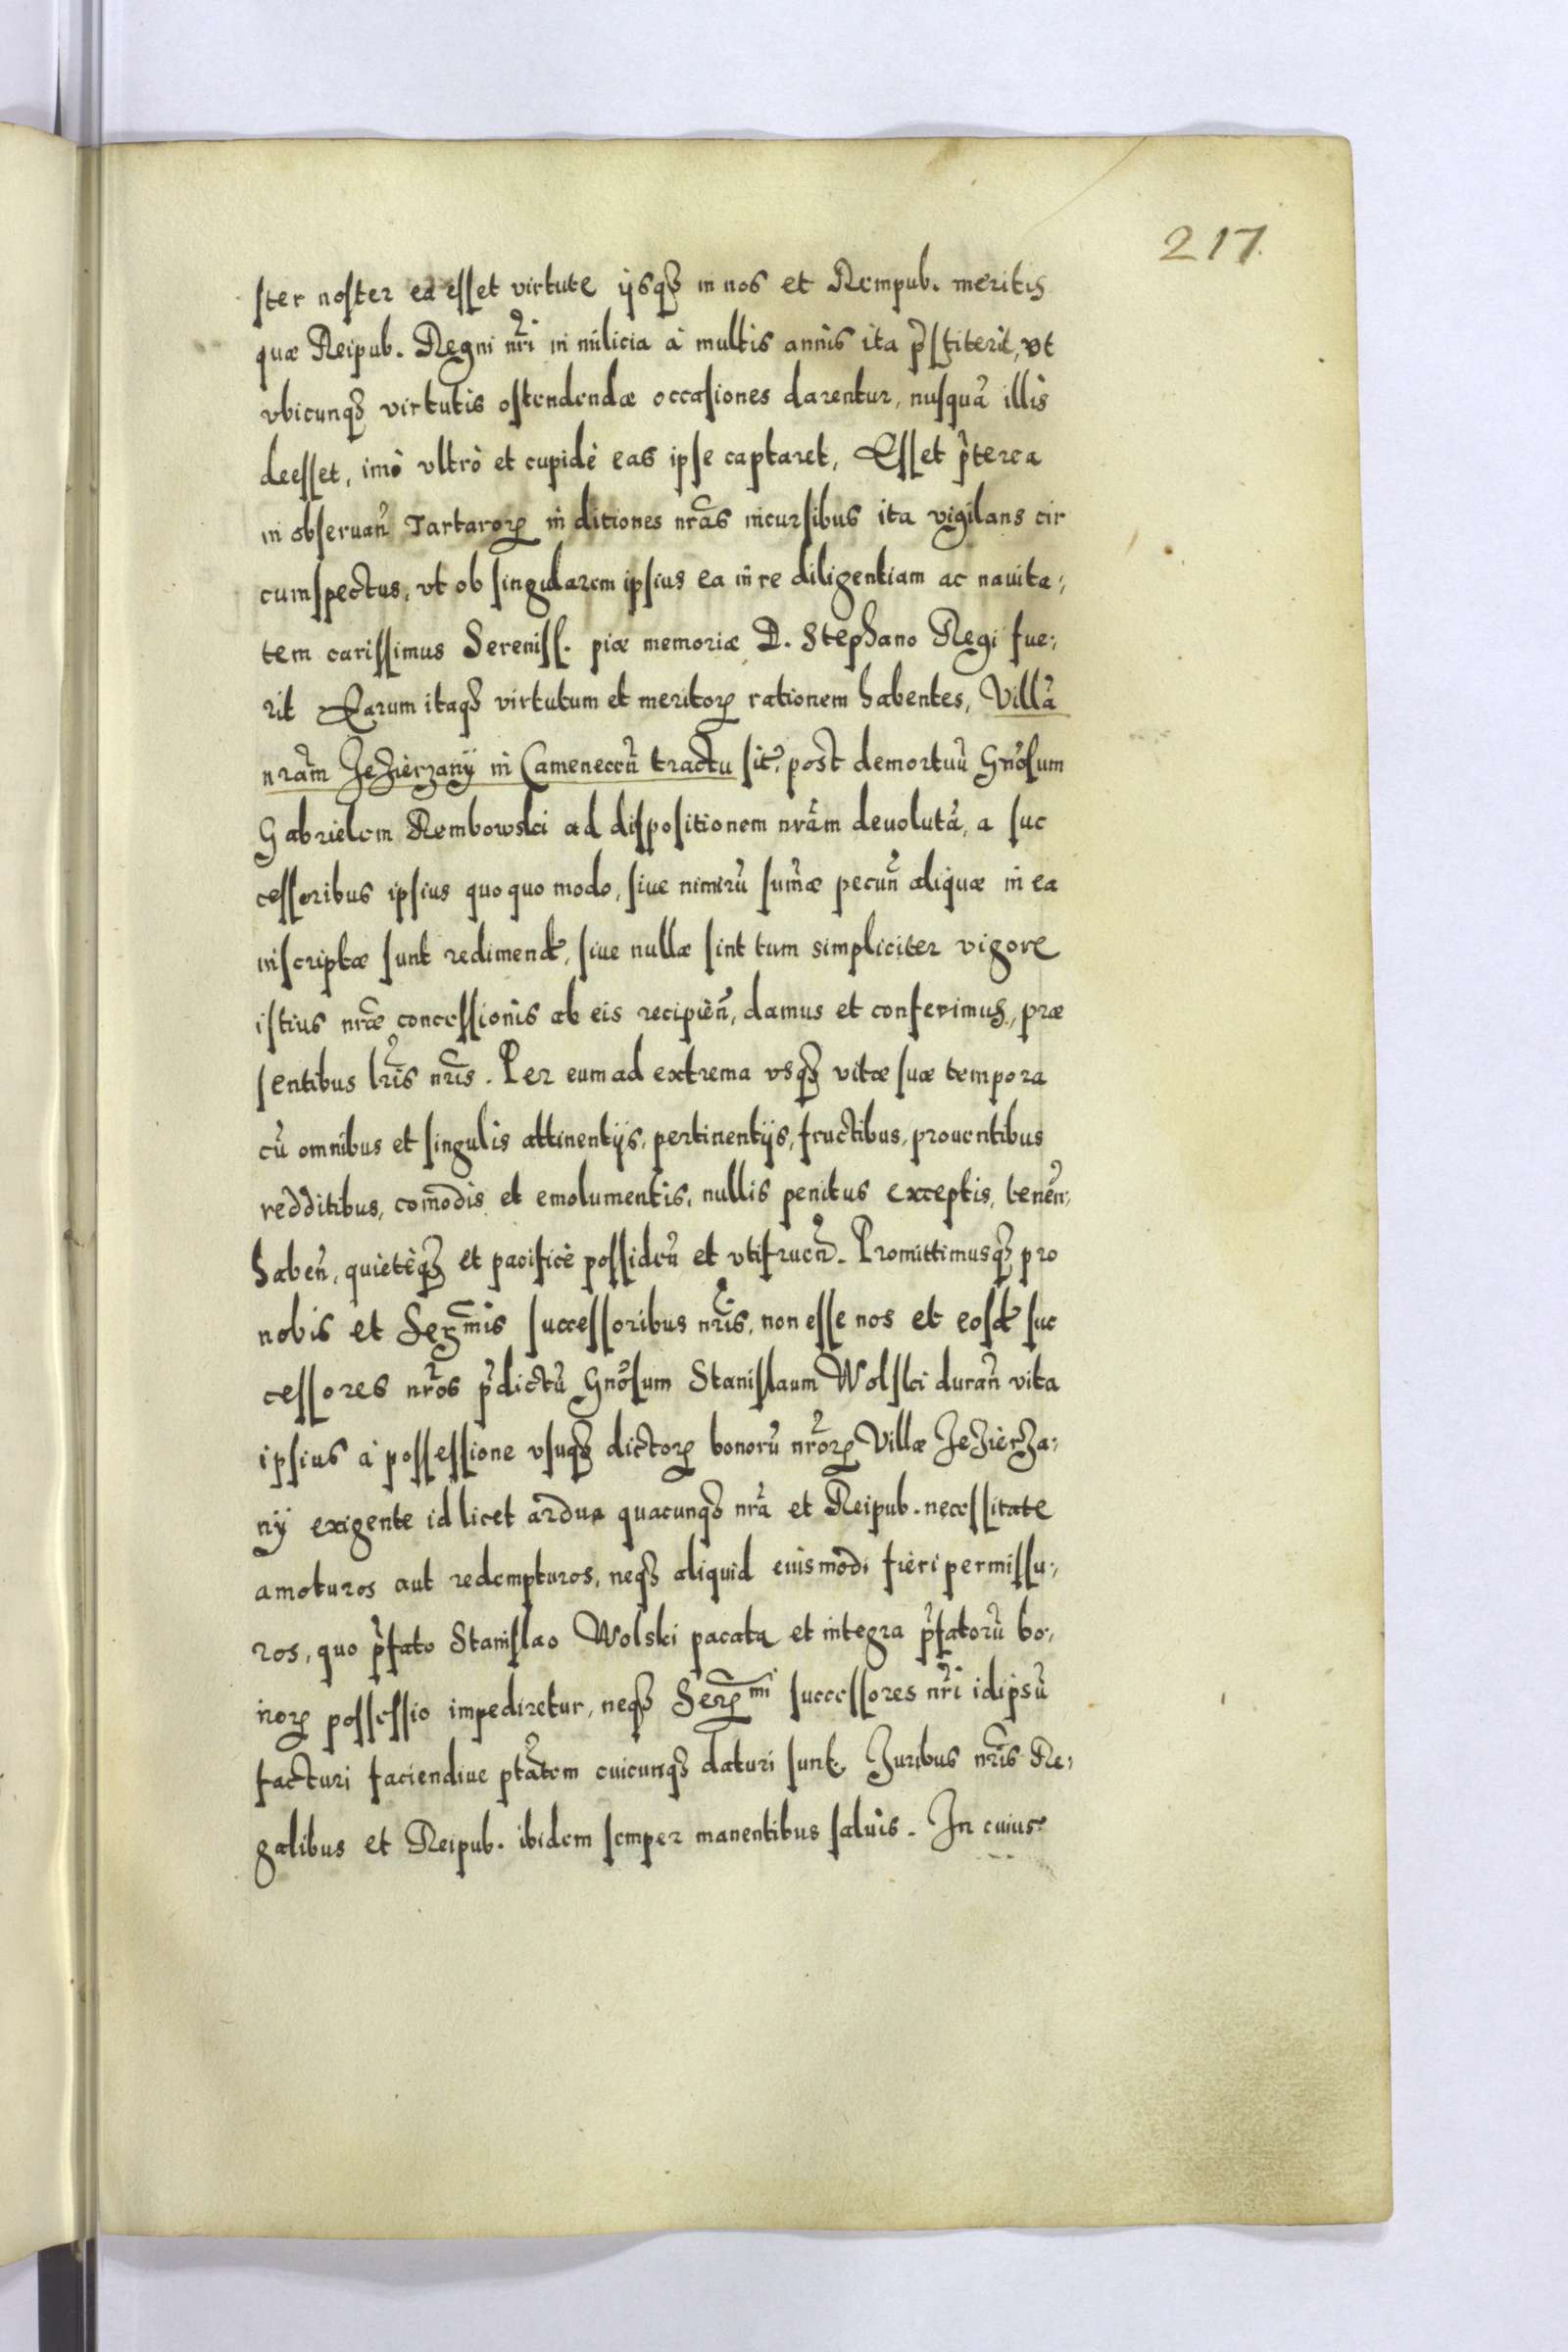 217.
ster noster ea esset virtute ijsq3 in nos et Rempub. meritis
quæ Reipub. Regni nr̃i in milicia à multis annis ita p̃stiterit, vt
vbicunq3 virtutis ostendendæ occasiones darentur, nusquã illis
deesset, imò vltrò et cupidè eas ipse captaret, Esset p̃terea
in obseruañ Tartaroꝝ in ditiones nrãs incursibus ita vigilans cir
cumspectus, vt ob singularem ipsius ea in re diligentiam ac nauita,
tem carissimus Sereniss. piæ memoriæ D. Stephano Regi fue,
rit Earum itaq3 virtutum et meritoꝝ rationem habentes, Villã
nrãm Jezierzany in Cameneceñ tractu sit. post demortuũ Gnõsum
Gabrielem Rembowski ad dispositionem nrãm deuolutã, a suc
cessoribus ipsius quoquo modo, siue nimirũ sum̃æ pecuñ aliquæ in ea
inscriptæ sunt redimend, siue nullæ sint tum simpliciter vigore
istius nræ̃ concessionis ab eis recipieñ, damus et conferimus, præ
sentibus lr̃is nr̃is. Per eum ad extrema vsq3 vitæ suæ tempora
cũ omnibus et singulis attinentijs, pertinentijs, fructibus, prouentibus
redditibus, com̃odis et emolumentis, nullis penitus exceptis, teneñ,
habeñ, quietèq3 et pacificè possideñ et vtifrueñ. Promittimusq3 pro
nobis et Serꝝmis successoribus nr̃is, non esse nos et eosd suc
cessores nr̃os p̃dictũ Gnõsum Stanislaum Wolski durañ vita
ipsius à possessione vsuq3 dictoꝝ bonorũ nr̃oꝝ Villæ Jezierza,
ny exigente id licet ardua quacunq3 nrã et Reipub. necessitate
amoturos aut redempturos, neq3 aliquid eiusmodi fieri permissu,
ros, quo p̃fato Stanislao Wolski pacata et integra p̃fatorũ bo,
noꝝ possessio impediretur, neq3 Serꝝmi successores nr̃i idipsũ
facturi faciendiue ptãtem cuicunq3 daturi sunt. Juribus nr̃is Re,
galibus et Reipub. ibidem semper manentibus saluis. In cuius